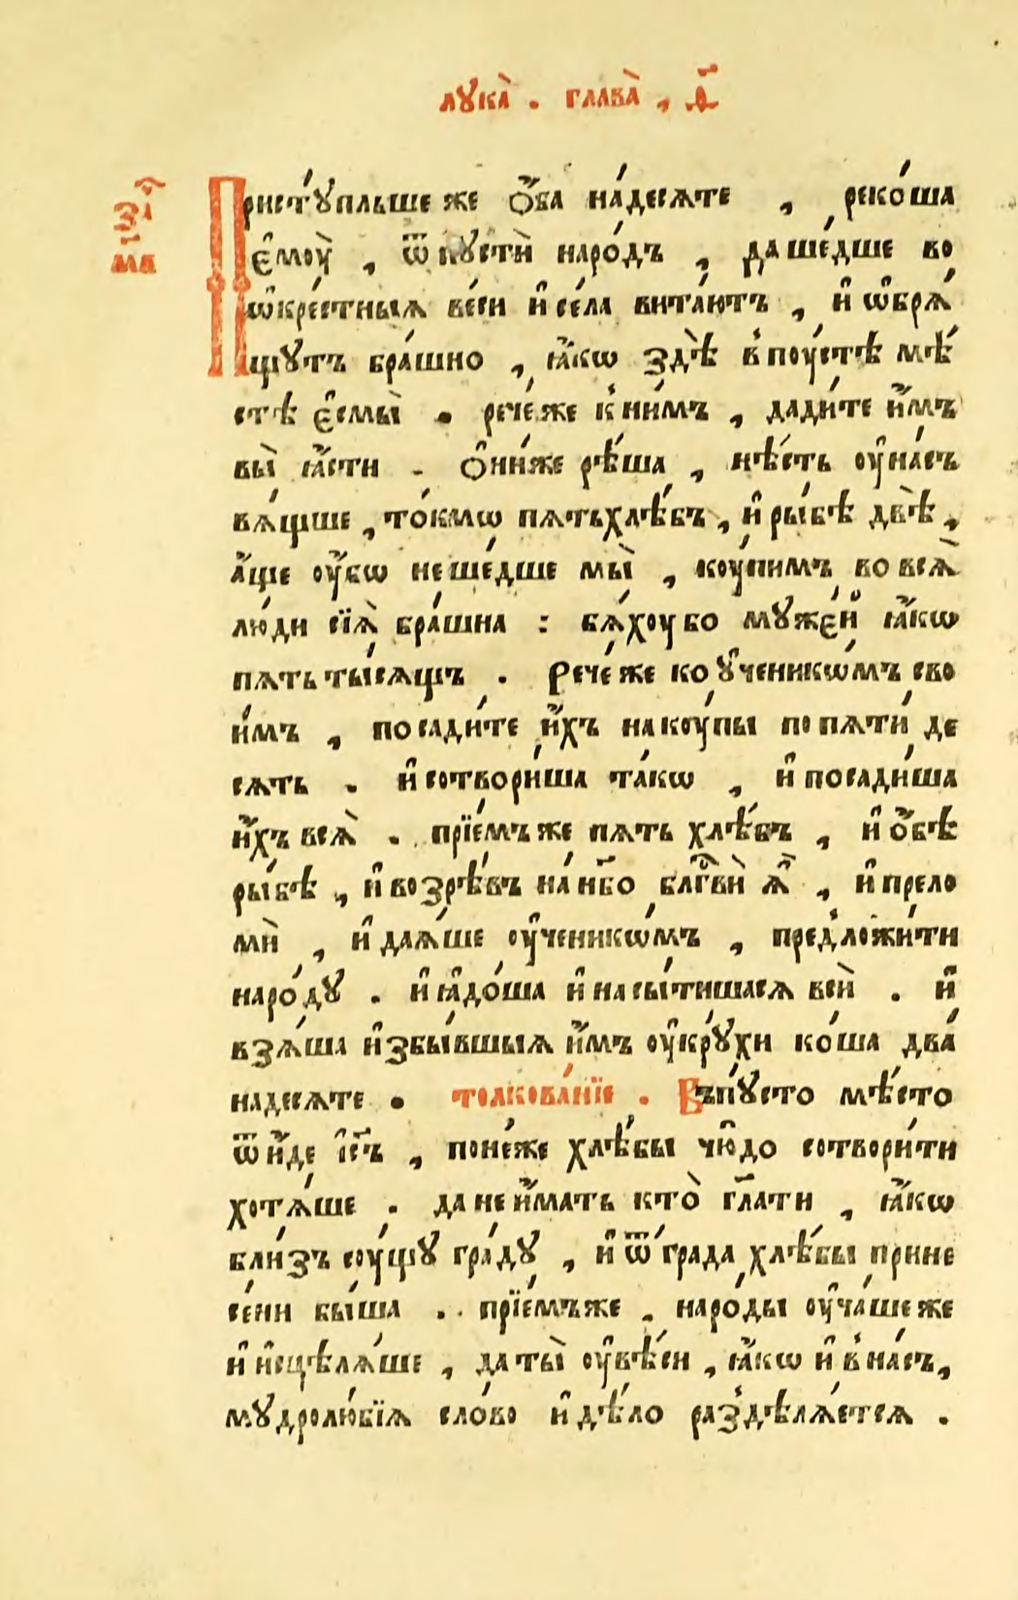 лꙋка̀ . глава̀ , ѳ҃
Пристꙋ́пльше же ѻ҆́ба на́десѧте , реко́ша
є҆моу̀ , ѿпꙋстѝ наро́дъ , да ше́дше во
ѡ҆кре́стныѧ ве́си и҆ се́ла вита́ютъ , и҆ ѡ҆брѧ́
щꙋтъ бра́шно , ꙗ҆́кѡ здѣ̀ в̾поу́стѣ мѣ́
стѣ є҆смы̀ . рече́ же к̾ни́мъ , дади́те и҆́мъ
вы̀ ꙗ҆́сти . ѻ҆ни́же рѣ́ша , нѣ́сть оу҆на́съ
вѧ́щше , то́кмѡ пѧтьхлѣ́бъ , и҆ ры́бѣ двѣ̀ ,
а҆́ще оу҆́бѡ не ше́дше мы̀ , коу́пимъ во всѧ̀
лю́ди сїѧ̀ бра́шна : бѧ́хоу бо мꙋже́й ꙗ҆́кѡ
пѧть ты́сѧщъ . Рече́ же ко ᲂу҆ченикѡ́мъ сво
и́мъ , посади́те и҆́хъ на коу́пы по пѧти́ де
сѧть . и҆ сотвори́ша та́кѡ , и҆ посади́ша
и҆́хъ всѧ̀ . прїе́мъ же пѧть хлѣ́бъ , и҆ ѻ҆́бѣ
ры́бѣ , и҆ воззрѣ́въ на́ нб҃о блг҃вѝ ѧ҆̀ , и҆ прело
мѝ , и҆ даѧ́ше оу҆ченикѡ́мъ , пред̾ложи́ти
наро́дꙋ . и҆ ꙗ҆до́ша и҆ насы́тишасѧ всѝ . и҆
взѧ́ша и҆збы́вшыѧ и҆́мъ оу҆крꙋ́хи ко́ша два́
надесѧте . толкова́нїе . Въпꙋ́сто мѣ́сто
ѿи҆́де і҆с҃ъ , поне́же хлѣ́бы чю̑до сотвори́ти
хотѧ́ше . да не и҆́мать кто̀ гл҃ати , ꙗ҆́кѡ
бли́зъ соу́щꙋ гра́дꙋ , и҆ ѿ гра́да хлѣ́бы прине
се́ни бы́ша . прїе́мъже , наро́ды оу҆ча́ше же
и҆ и҆сцѣлѧ́ше , да ты̀ оу҆вѣ́си , ꙗ҆́кѡ и҆ в̾на́съ ,
мꙋдролю́бїѧ сло́во и҆ дѣ́ло раз̾дѣлѧ́етсѧ .